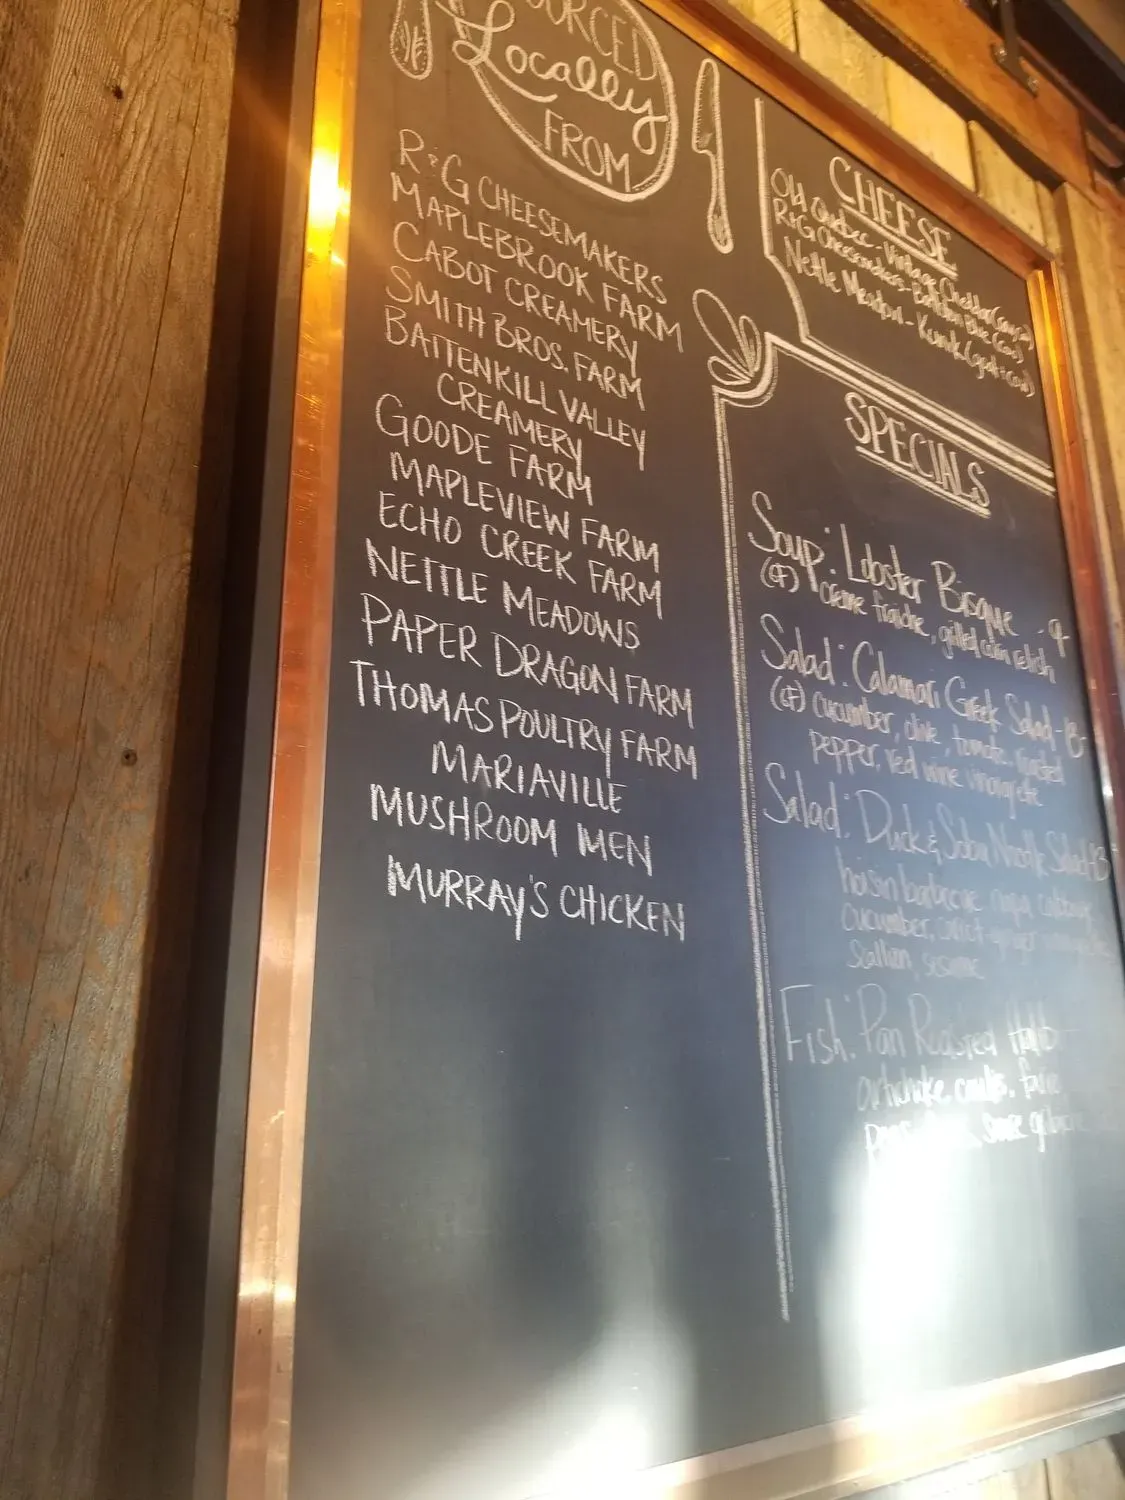 Locally
FROM
R&G CHEESEMAKERS
MAPLEBROOK FARM
CABOT CREAMERY
SMITH BROS. FARM
BATTENKILL VALLEY
CREAMERY
GOODE FARM
MAPLEVIEW FARM
ECHO CREEK FARM
NETTLE MEADOWS
PAPER DRAGON FARM
THOMAS POULTRY FARM
MARIAVILLE
MUSHROOM MEN
MURRAY'S CHICKEN
CHEESE
Old Quebec - Vintage Cheddar (cow)
R&G Cheesemakers - Blue (cow)
Nettle Meadow - Kunik (goat + cow)
SPECIALS
Soup: Lobster Bisque - 9-
(GF) crème fraiche, grilled corn relish
Salad: Calamari Greek Salad - 18-
(GF) cucumber, olive, tomato, roasted
pepper, red wine vinaigrette
Salad: Duck & Soba Noodle Salad
hoisin barbecue napa cabbage
cucumber,
scallion, sesame
Fish: Pan Roasted
artichoke